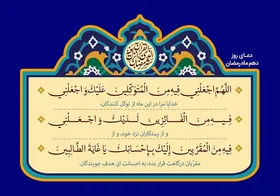 دعـای روز
دهم ماه رمضان
اللَّهُمَّ اجْعَلْنِي فِيهِ مِنَ الْمُتَوَكِّلِينَ عَلَيْكَ وَاجْعَلْنِي
خدایا مرا در این ماه از توکل کنندگان،
فِيهِ مِنَ الْفَائِزِينَ لَدَيْكَ وَاجْعَلْنِي
و از رستگاران نزد خود، و از
فِيهِ مِنَ الْمُقَرَّبِينَ إِلَيْكَ بِإِحْسَانِكَ يَا غَايَةَ الطَّالِبِينَ
مقرّبان درگاهت قرار بده، به احسانت ای هدف جویندگان.